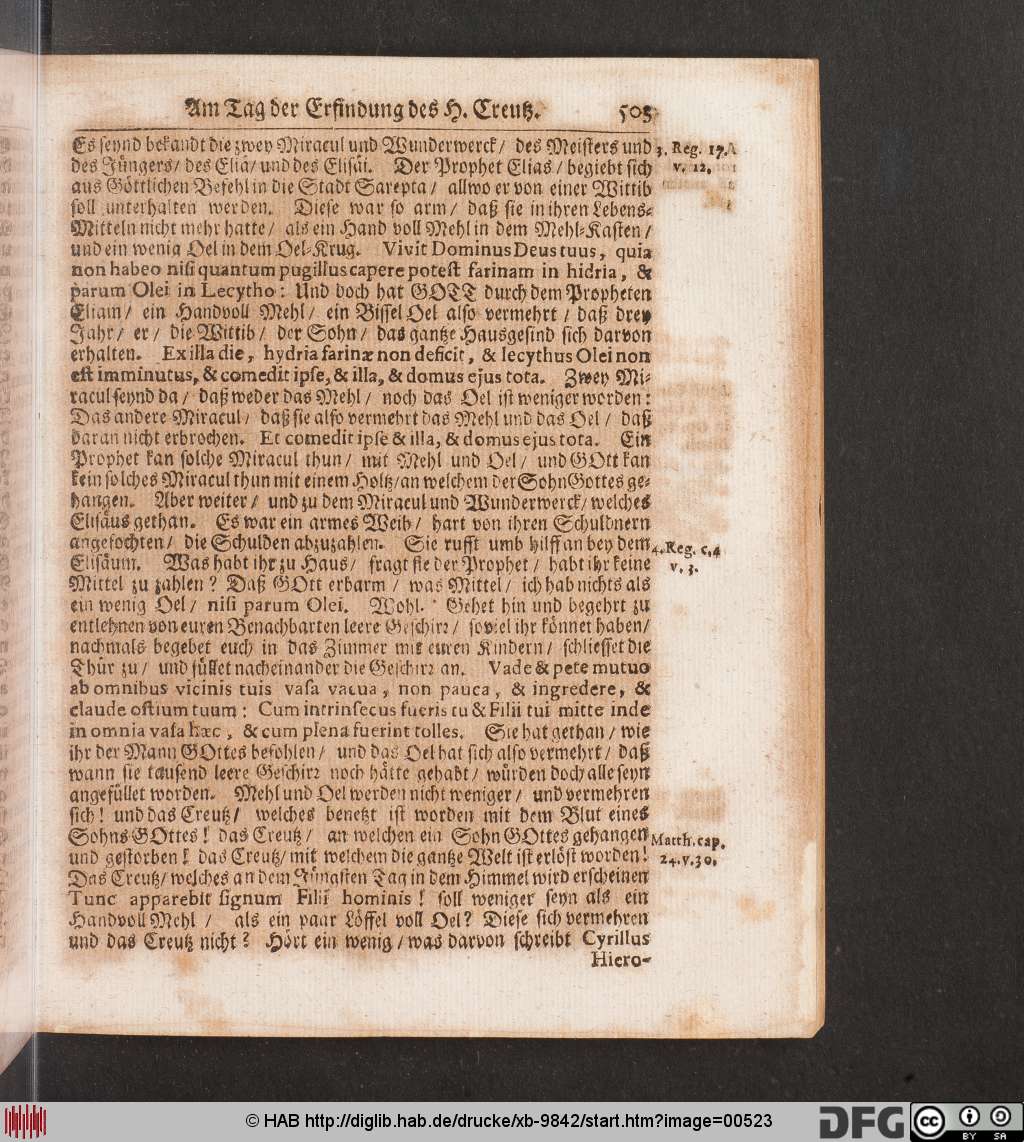 Am Tag der Erfindung des H. Creutz. 505
Es seynd bekandt die zwey Miracul und Wunderwerck/ des Meisters und
3. Reg. 17.
des Jüngers/ des Eliä/ und des Elisäi. Der Prophet Elias/ begiebt sich
v. 12.
aus Göttlichen Befehl in die Stadt Sarepta/ allwo er von einer Wittib
soll unterhalten werden. Diese war so arm/ daß sie in ihren Lebens-
Mitteln nicht mehr hatte/ als ein Hand voll Mehl in dem Mehl-Kasten/
und ein wenig Oel in dem Oel-Krug. Vivit Dominus Deus tuus, quia
non habeo nisi quantum pugillus capere potest farinam in hidria, &
parum Olei in Lecytho: Und doch hat GOTT durch dem Propheten
Eliam/ ein Handvoll Mehl/ ein Bissel Oel also vermehrt/ daß drey
Jahr/ er/ die Wittib/ der Sohn/ das gantze Hausgesind sich darvon
erhalten. Ex illa die, hydria farinæ non deficit, & lecythus Olei non
est imminutus, & comedit ipse, & illa, & domus ejus tota. Zwey Mi-
racul seynd da/ daß weder das Mehl/ noch das Oel ist weniger worden:
Das andere Miracul/ daß sie also vermehrt das Mehl und das Oel/ daß
daran nicht erbrochen. Et comedit ipse & illa, & domus ejus tota. Ein
Prophet kan solche Miracul thun/ mit Mehl und Oel/ und GOtt kan
kein solches Miracul thun mit einem Holtz/ an welchem der Sohn Gottes ge-
hangen. Aber weiter/ und zu dem Miracul und Wunderwerck/ welches
Elisäus gethan. Es war ein armes Weib/ hart von ihren Schuldnern
angefochten/ die Schulden abzuzahlen. Sie rufft umb hilff an bey dem
4. Reg. c. 4
Elisäum. Was habt ihr zu Haus/ fragt sie der Prophet/ habt ihr keine
v. 3.
Mittel zu zahlen? Daß GOtt erbarm/ was Mittel/ ich hab nichts als
ein wenig Oel/ nisi parum Olei. Wohl. Gehet hin und begehrt zu
entlehnen von euren Benachbarten leere Geschirr/ so viel ihr könnet haben/
nachmals begebet euch in das Zimmer mit euren Kindern/ schliesset die
Thür zu/ und füllet nacheinander die Geschirr an. Vade & pete mutuo
ab omnibus vicinis tuis vasa vacua, non pauca, & ingredere, &
claude ostium tuum: Cum intrinsecus fueris tu & Filii tui mitte inde
in omnia vasa hæc, & cum plena fuerint tolles. Sie hat gethan/ wie
ihr der Mann GOttes befohlen/ und das Oel hat sich also vermehrt/ daß
wann sie tausend leere Geschirr noch hätte gehabt/ würden doch alle seyn
angefüllet worden. Mehl und Oel werden nicht weniger/ und vermehren
sich! und das Creutz/ welches benetzt ist worden mit dem Blut eines
Sohns GOttes! das Creutz/ an welchen ein Sohn GOttes gehangen
Matth. cap.
und gestorben! das Creutz/ mit welchem die gantze Welt ist erlöst worden!
24. v. 30.
Das Creutz/ welches an dem Jüngsten Tag in dem Himmel wird erscheinen
Tunc apparebit signum Filii hominis! soll weniger seyn als ein
Handvoll Mehl/ als ein paar Löffel voll Oel? Diese sich vermehren
und das Creutz nicht? Hört ein wenig/ was darvon schreibt Cyrillus
Hiero-
© HAB http://diglib.hab.de/drucke/xb-9842/start.htm?image=00523
DFG
cc BY SA